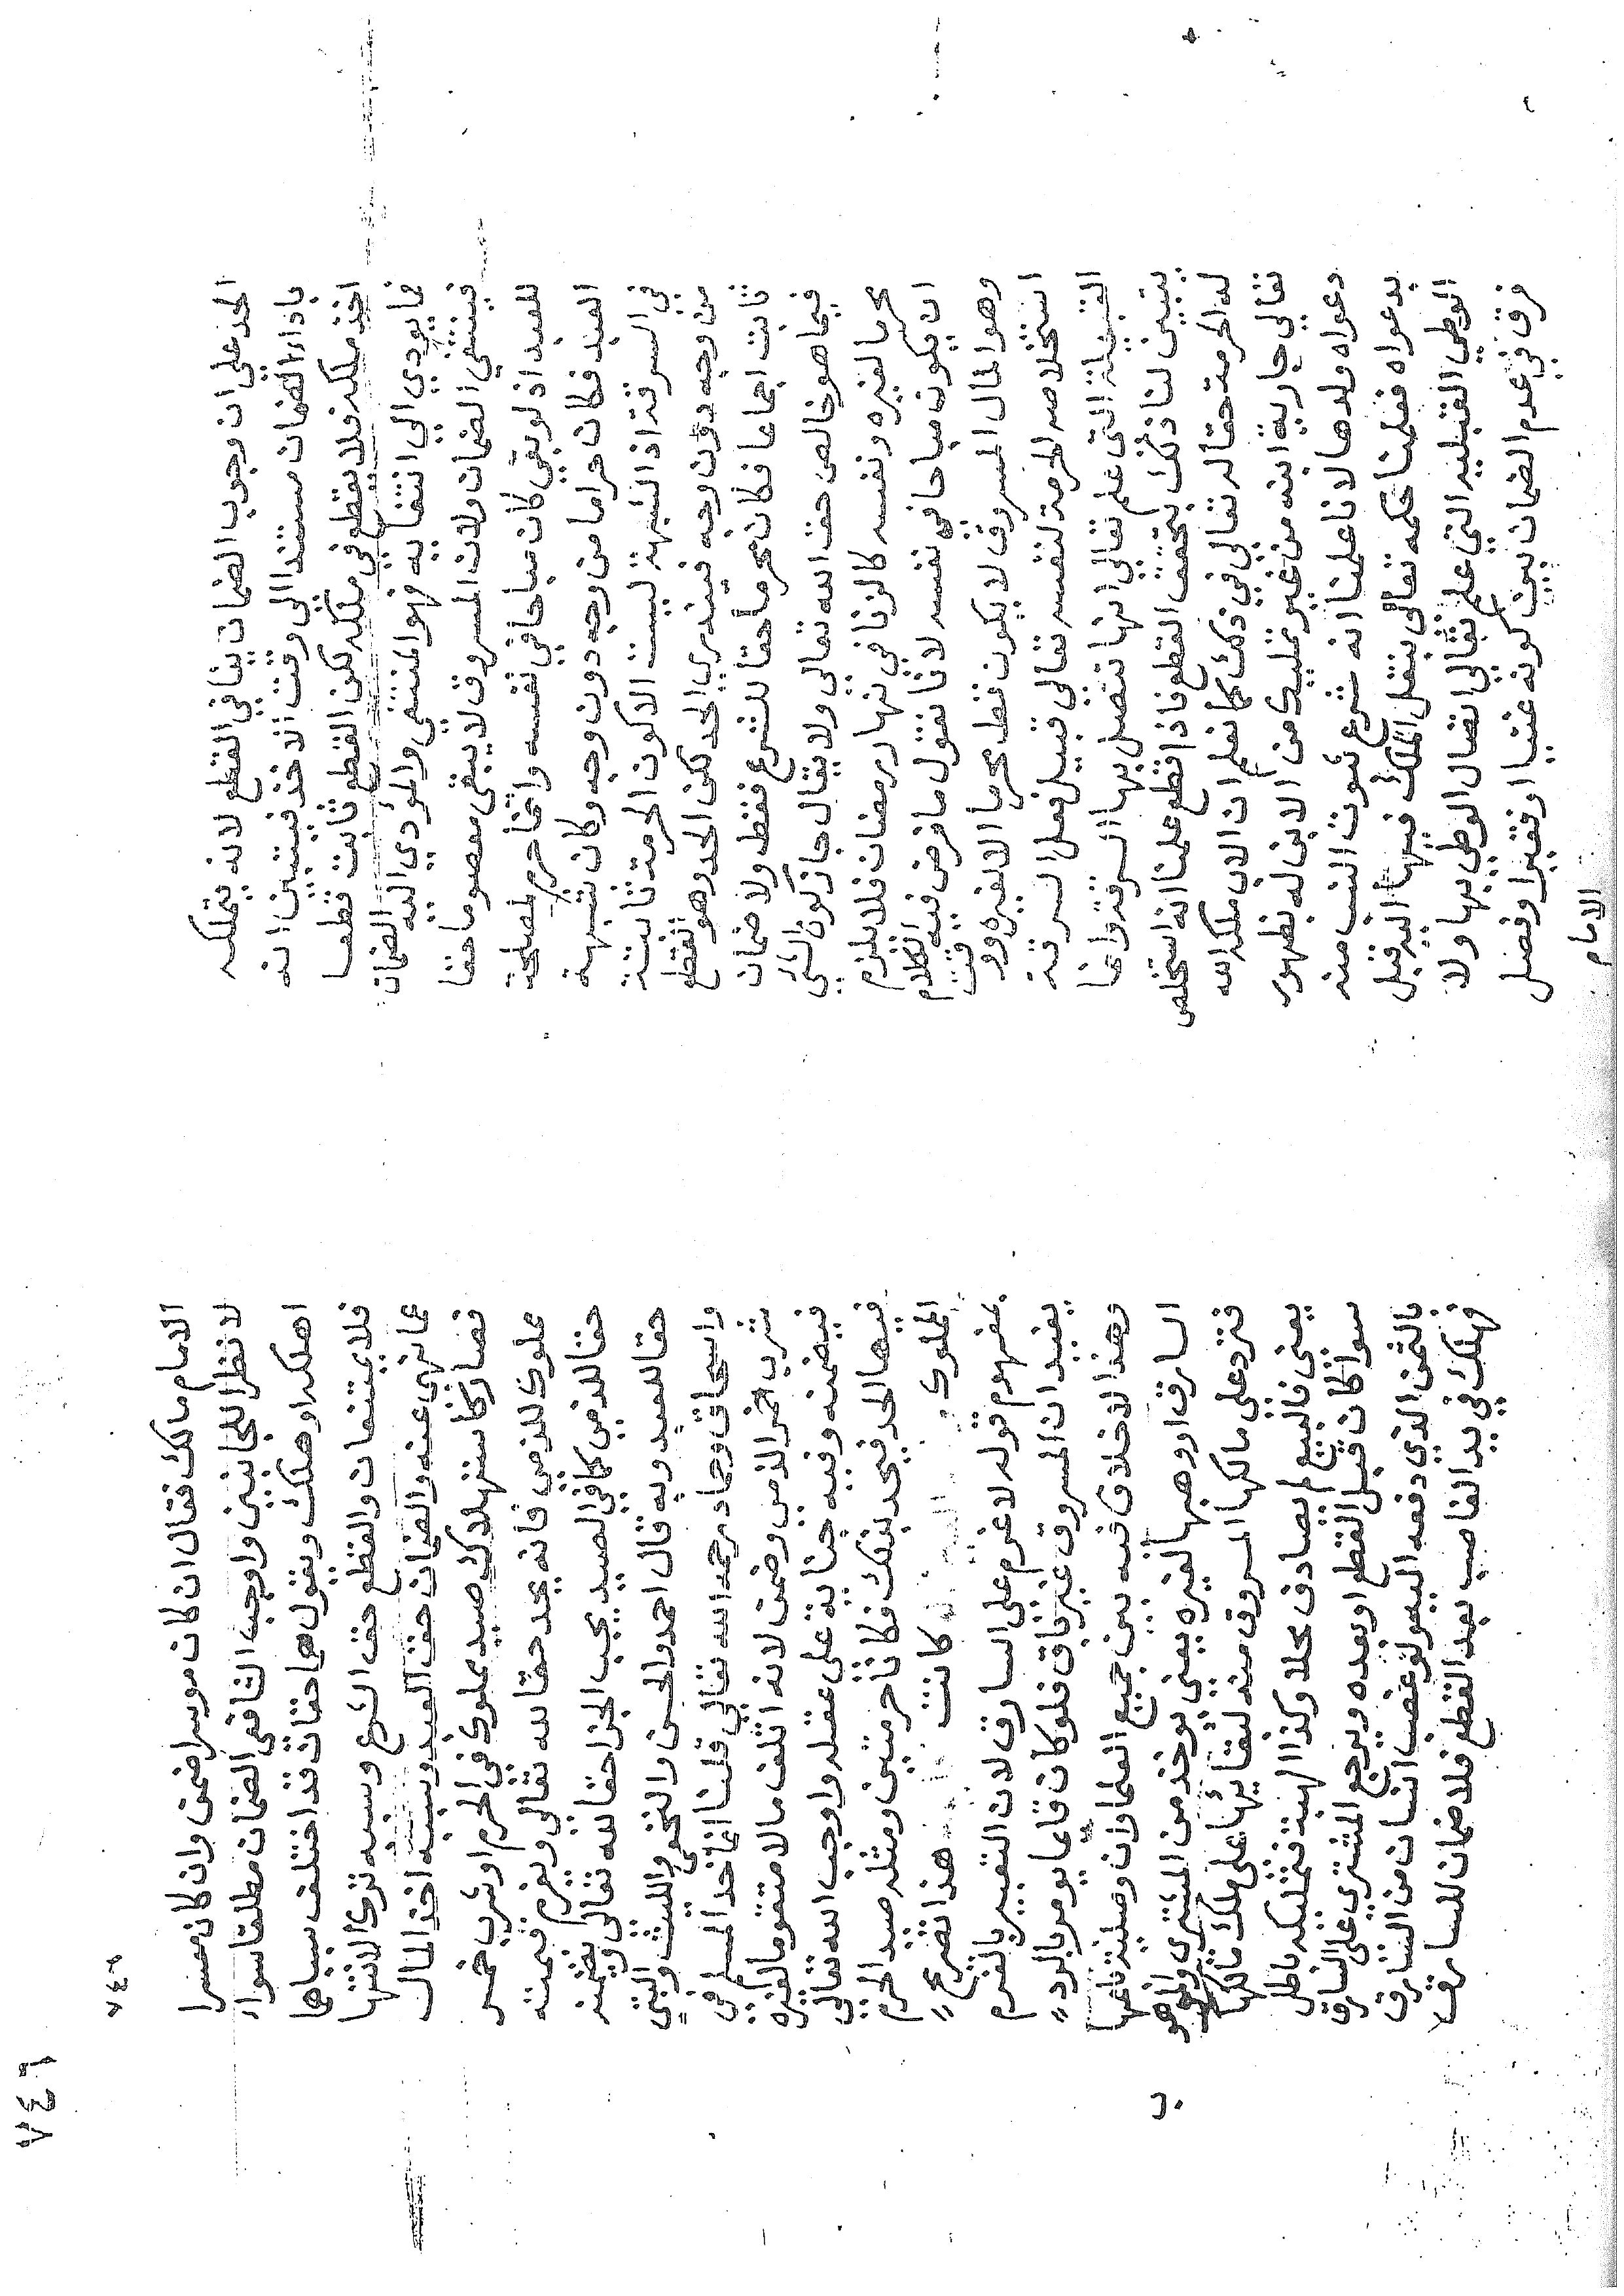 الحد علي ان وجوب الضمان ينافي القطع لانه يتملكه
باداء الضمان مستندا الى وقت الاخذ فيتبين انه
اخذ ملكه فلا يقطع في ملكه لكن القطع ثابت قطعا
فما يودي الي انتفايه فهو المنتفي والمؤدي اليه الضمان
فينتفي الضمان ولان المسروق لا يبقى معصوما حقا
للعبد اذ لو بقي كان مباحا في نفسه وانما حرم لمصلحة
العبد فكان حراما من وجه دون وجه وكان شبهة
في السرقة اذ الشبهة ليست الا كون الحرمة ثابتة
من وجه دون وجه فيندرى الحد لكن الحد وهو القطع
ثابت اجماعا فكان محرما حقا للشرع فقط ولا ضمان
فيما هو خالص حق الله تعالى ولا يقال جاز كون الشي
محرما لغيره ونفسه كالزنا في نهار رمضان فلا يلزم
ان يكون مباحا في نفسه لانا نقول ما فرض فيه الكلام
وهو المال المسروق لا يكون قط محرما الا لغيره ووقت
استخلاصه الحرمة لنفسه تعالى قبيل فعل السرقة
القبيلة التي علم تعالى انها تتصل بها السرقة وانما
يتبين لنا ذلك بتحقق القطع فاذا قطع علمنا انه استخلص
له الحرمة حقا له تعالى في ذلك كما نعلم ان الاب ملكه الله
تعالى جارية ابنه من غير تمليك من الابن له بظهور
دعواه ولدها لانا علمنا انه شرع ثبوت النسب منه
بدعواه فعلمنا حكمه تعالى بنقل الملك فيها اليه قبل
الوطي القبلية التي علم تعالى اتصال الوطي بها ولا
فرق في عدم الضمان بين كونه غنيا او فقيرا وفصل
الامام
٧٤٦
٧٤٦
الامام مالك فقال ان كان موسرا ضمن وان كان معسرا
لا نظرا للجانبين واوجب الشافعي الضمان مطلقا سواء
اهلكه او هلك ويقول هما حقان قد اختلف سبباهما
فلا يمتنعان والقطع حق الشرع وسببه ترك الانتها
عما نهى عنه والضمان حق العبد وسببه اخذ المال
فصار كاستهلاك صيد مملوك في الحرم او شرب خمر
مملوك للذمي فانه يحد حقا لله تعالى ويغرم قيمته
حقا للذمي كما في الصيد يجب الجزا حقا لله تعالى ويضمنه
حقا للعبد وبه قال احمد والحسن والنخعي والليث والبتي
واسحاق وحماد رحمه الله تعالى قلنا انما حد المسلم في
شرب خمر الذمي وضمن لانه اتلف مالا متقوما لغيره
فيضمنه وفيه جناية على عقله واوجب الله تعالى
فيها الحد فيحد بتلك فكانا حرمتين ومثله صيد الحرم
المملوك كانت هذا تفريع
بمفهوم قوله لا غرم على السارق لان التعبير بالغرم
يفيد ان المسروق غير باق فلو كان قائما يومر بالرد
وهذا لا خلاف فيه بين جميع العلما وان وصلية باعها
السارق او وهبها لغيره يعني يوخذ من المشتري والموهوب
فترد على مالكها المسروق منه لبقائها على ملك مالكها
يعني فالبيع لم يصادف محلا وكذا الهبة فتمليكه باطل
سوا كان قبل القطع او بعده ويرجع المشتري على السارق
بالثمن الذي دفعه اليه ولو غصب انسان من السارق
فهلك في يد الغاصب بعد القطع فلا ضمان للسارق